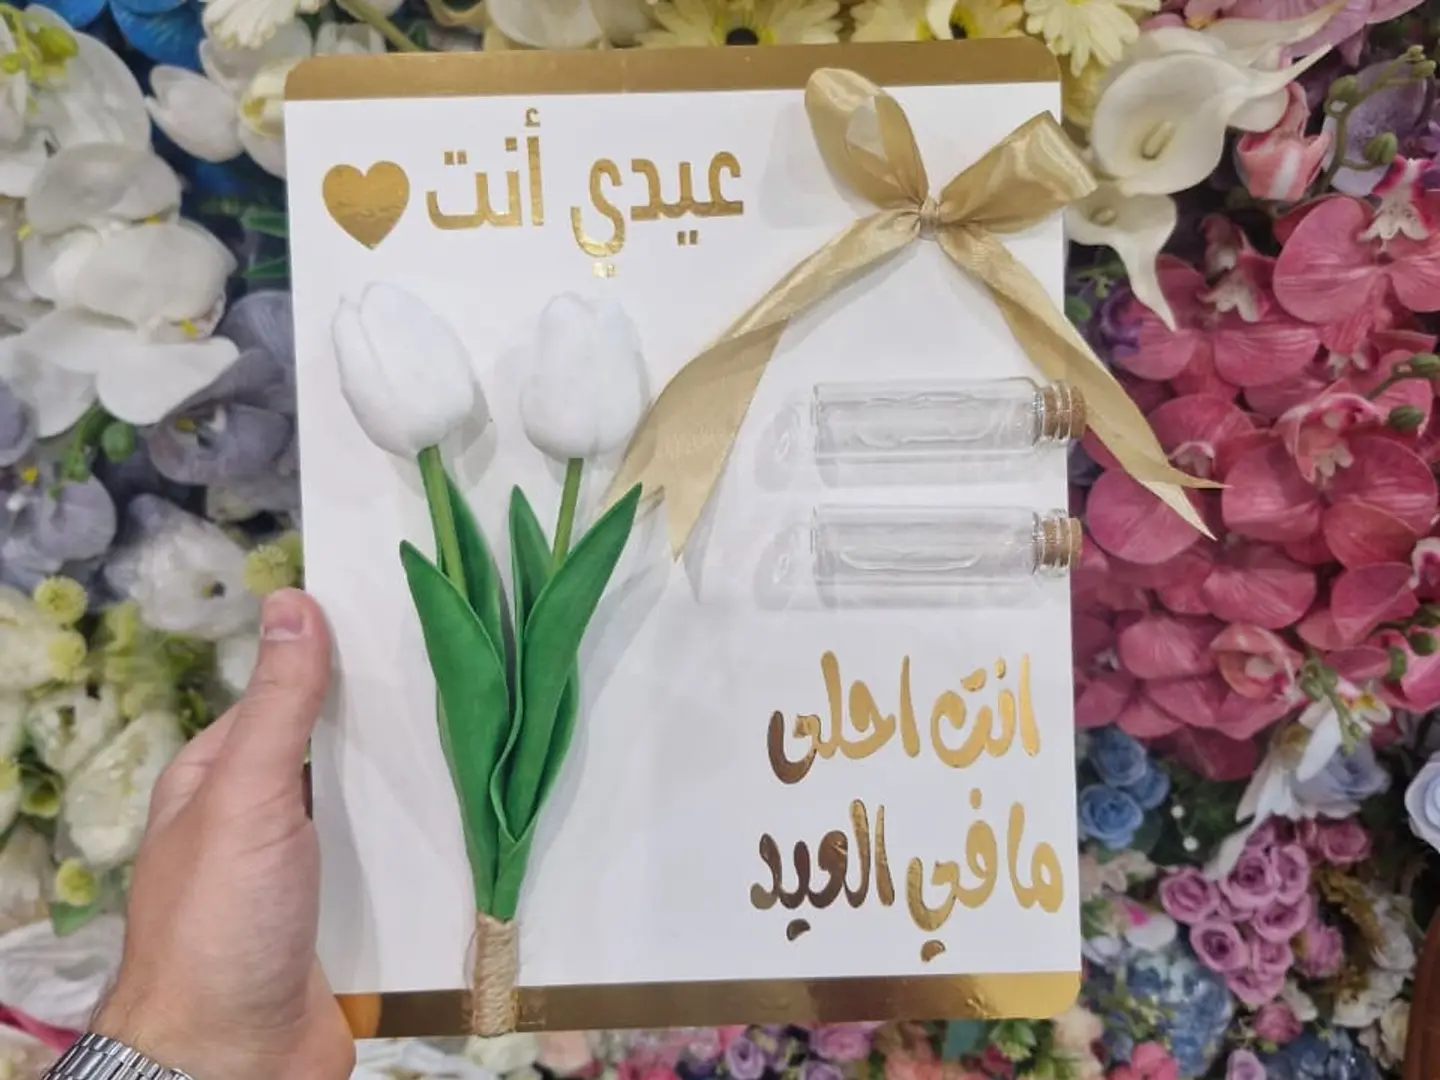 عيدي أنت
انت احلى
ما في العيد